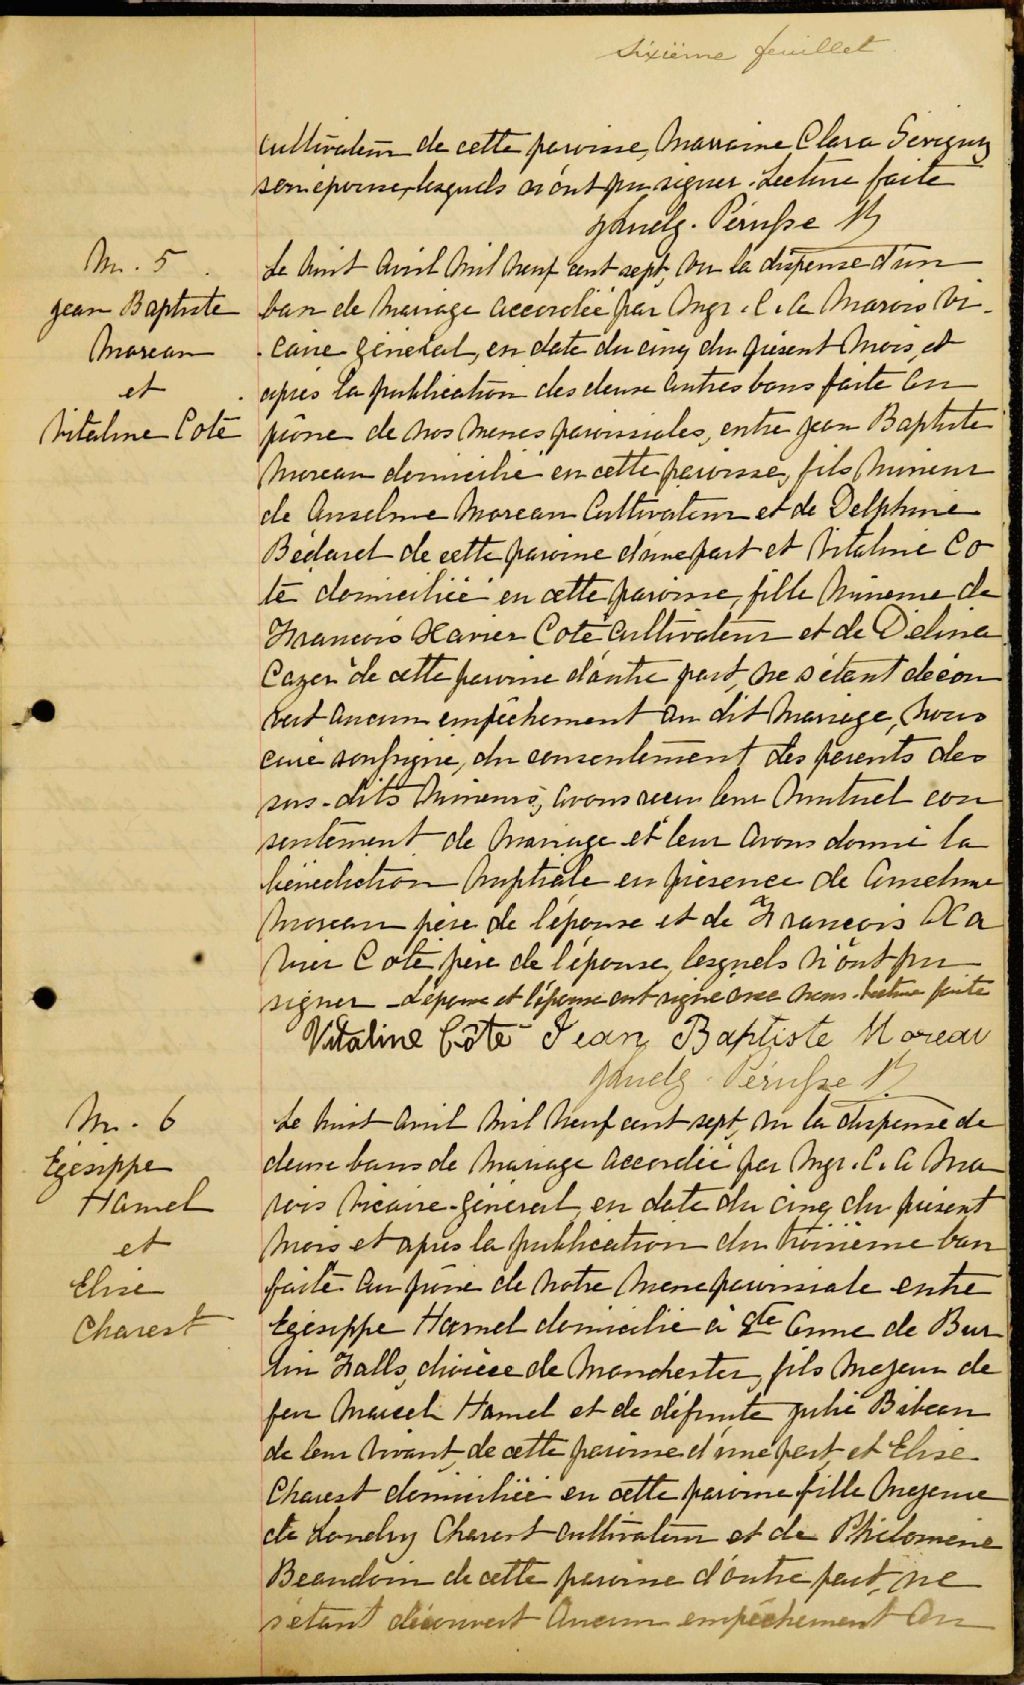 Sixième feuillet
cultivateur de cette paroisse, Marraine Clara Sévigny
son épouse, lesquels n'ont pu signer. Lecture faite
Pérusse
M. 5
Jean Baptiste
Moreau
et
Vitaline Coté
Le huit Avril Mil Neuf cent sept, Vu la dispense d'un
ban de Mariage accordée par Mgr. C. A Marois Vi-
caire général, en date du cinq du présent Mois, et
après la publication des deux autres bans faite au
prône de nos Messes paroissiales, entre Jean Baptiste
Moreau domicilié en cette paroisse, fils Mineur
de Anselme Moreau Cultivateur et de Delphine
Bédard de cette paroisse d'une part et Vitaline Co
té domiciliée en cette paroisse, fille Mineure de
Francois Xavier Coté cultivateur et de Délina
de cette paroisse d'autre part, ne s'étant décou
vert aucun empêchement au dit Mariage, Nous
curé soussigné, du consentement des parents des
sus-dits Mineurs, avons reçu leur Mutuel con
sentement de Mariage et leur avons donné la
bénédiction Nuptiale en présence de Anselme
Moreau père de l'époux et de Francois Xa
vier Coté père de l'épouse, lesquels n'ont pu
signer - L'époux et l'épouse ont signé avec nous. Lecture faite
Vitaline Côté Jean Baptiste Moreau
Pérusse
M. 6
Egésippe
Hamel
et
Elise
Charest
Le huit Avril Mil Neuf cent sept, Vu la dispense de
deux bans de Mariage accordée par Mgr. C. A Ma
rois Vicaire-général, en date du cinq du présent
Mois et après la publication du troisième ban
faite au prône de notre Messe paroissiale entre
Egésippe Hamel domicilié à Ste Anne de Bur
lin Falls, diocèse de Manchester, fils Majeur de
feu Marcel Hamel et de défunte Julie Bibeau
de leur Vivant, de cette paroisse d'une part, et Elise
Charest domiciliée en cette paroisse fille Majeure
de Landry Charest cultivateur et de Philomène
Beaudoin de cette paroisse d'autre part, ne
s'étant découvert aucun empêchement au